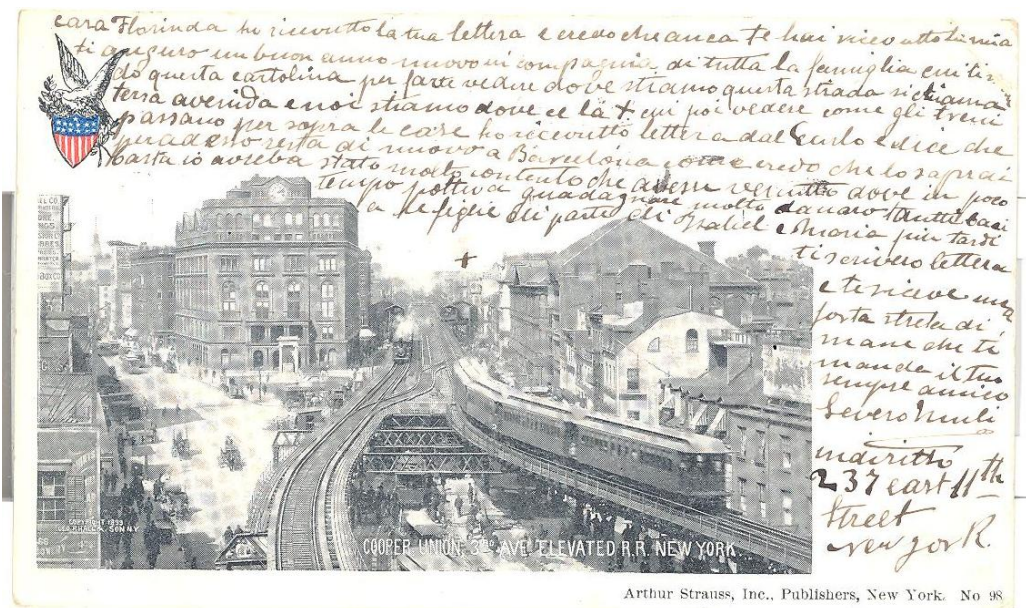 cara Florinda ho ricevutto la tua lettera e credo che anca te hai ricevutto la mia
ti auguro un buon anno nuovo in compagnia di tutta la famiglia
do questa cartolina per farte vedere dove stiamo questa strada si chiama
tersa avenida e noi stiamo dove ce la + qui poi vedere come gli treni
passano per sopra le case ho ricevutto lettera dal e dice che
resta di nuovo a Barcelona credo che lo saprai
basta io stato molto contento che avesse dove in poco
tempo guadagnare molto danaro
le figlie di parte di e Maria più tardi
ti scrivero lettera
e te riceve una
forta streta di
mane che ti
manda il tuo
sempre amico
Severo
+
indiritto
237 east 11th
Street
New york.
COPYRIGHT 1899
COOPER UNION, 3RD AVE ELEVATED R.R. NEW YORK.
Arthur Strauss, Inc., Publishers, New York. No 98